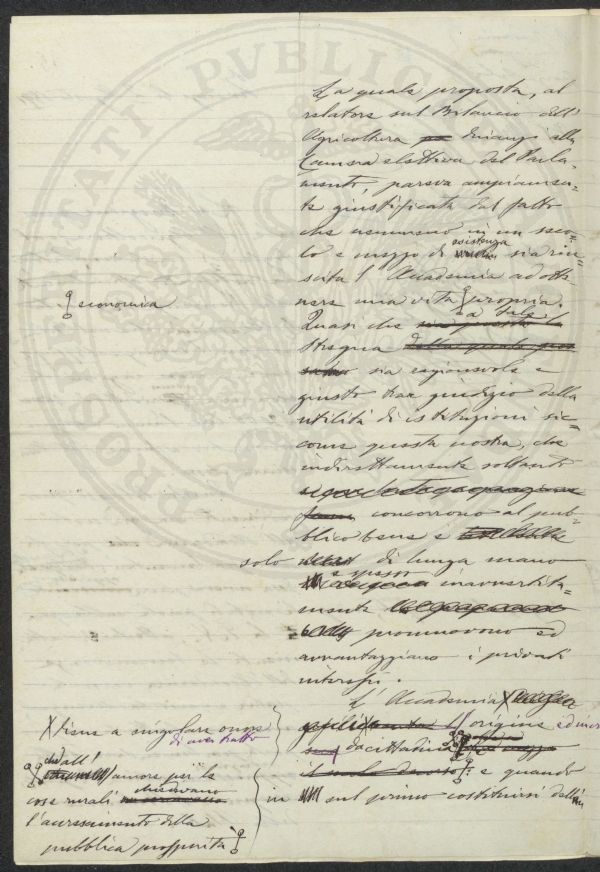 La quale proposta, al
relatore sul Bilancio dell'
Agricoltura dinanzi alla
Camera elettiva del Parla-
mento, pareva ampiamen-
te giustificata dal fatto
che nemmeno in un seco-
lo e mezzo di esistenza sia riu-
scita l'Accademia ad otte-
nere una vita propria.
economia
Quasi che a tale
stregua
sia ragionevole e
giusto trar giudizio della
utilità di istituzioni sic-
come questa nostra, che
indirettamente soltanto
concorrono al pub-
blico bene e
solo di lunga mano
e spesso inavvertita-
mente
promuovono ed
avvantaggiano i privati
interessi.
L'Accademia
origine
da cittadini
e quando
in sul primo costituirsi
X bene a singolare onore
di aver tratto
dall'amore per le
cose rurali
l'accrescimento della
pubblica prosperità
PROSPERITATI PVBLICAE